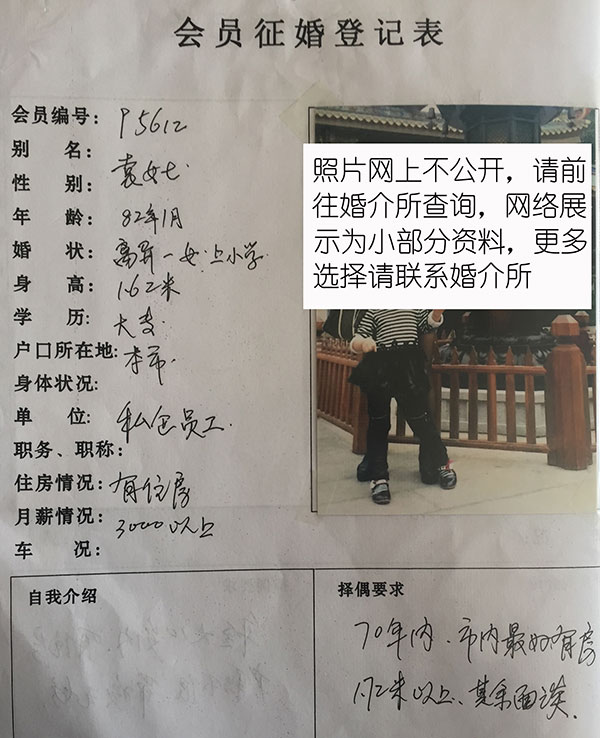 会员征婚登记表
会员编号: P5612
别 名: 袁女士
性 别:
年 龄: 82年1月
婚 状: 离异一女上小学
身 高: 1.62米
学 历: 大专
户口所在地: 本市.
身体状况:
单 位: 私企员工.
职务、职称:
住房情况: 有住房
月薪情况: 3000以上
车 况:
照片网上不公开，请前
往婚介所查询，网络展
示为小部分资料，更多
选择请联系婚介所
自我介绍
择偶要求
70年内、市内最好有房
1.72米以上、其余面谈.